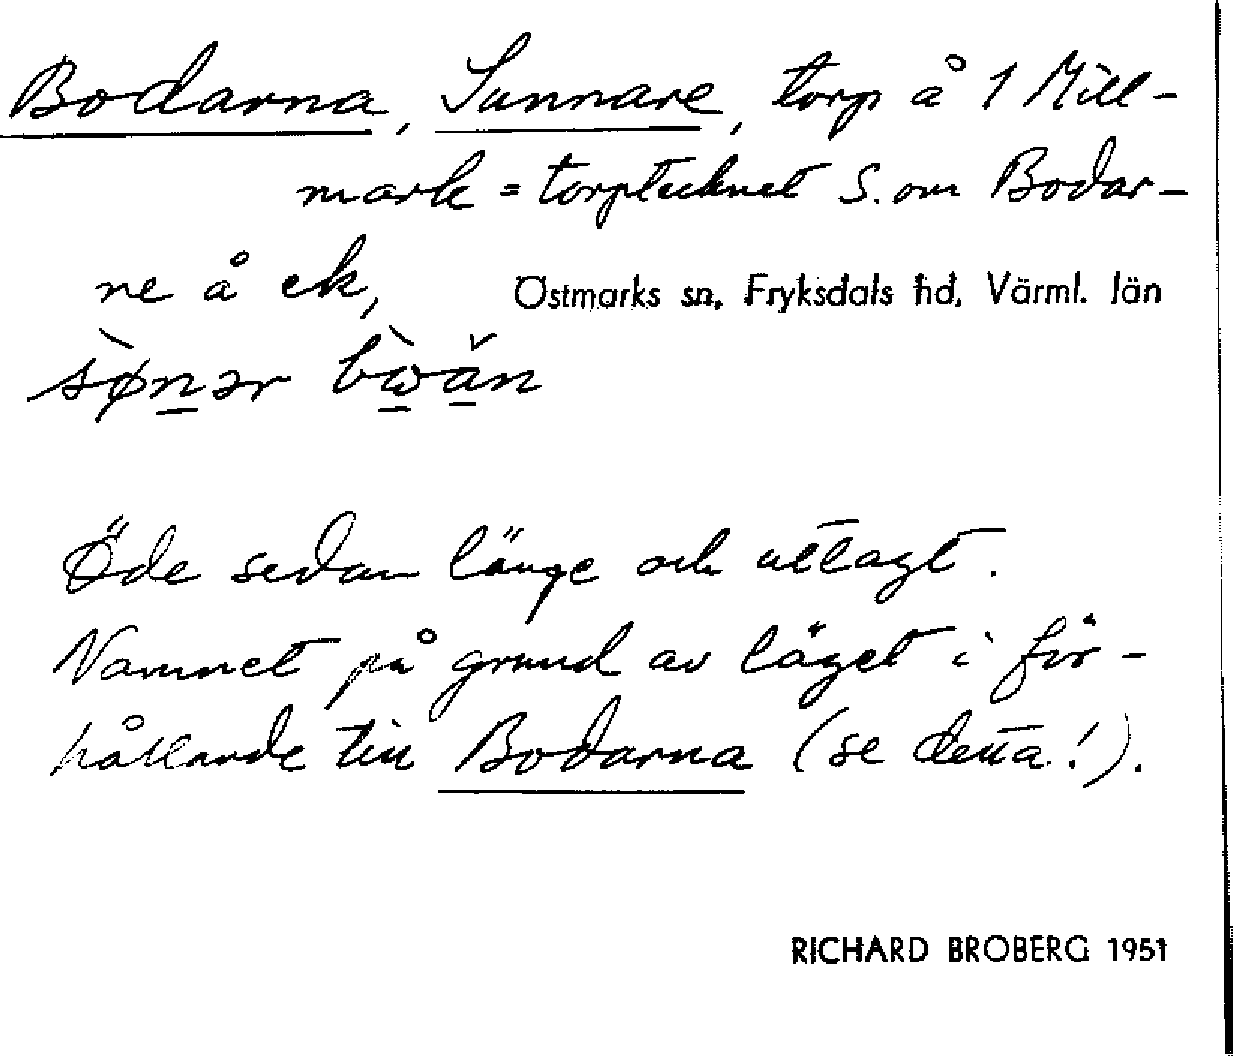 Bodarna, Sunnare, torp å 1 Mill-
mark = torptecknet S. om Bodar-
ne å ek,
Östmarks sn, Fryksdals hd, Värml. län
sø̀nər bẁa̍n
Öde sedan länge och utlagt.
Namnet på grund av läget i för-
hållande till Bodarna (se detta!).
RICHARD BROBERG 1951